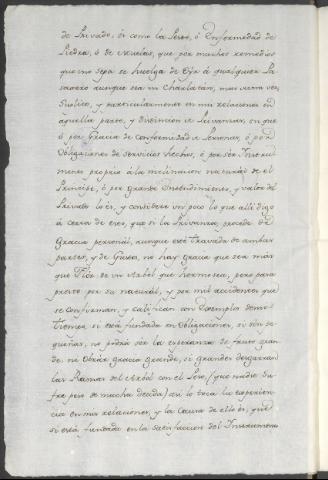 de Privado, si como la Peste, ó Enfermedad de
Piedra, ó de viruelas, que por muchos remedios
que uno sepa se huelga de Oyr á qualquier Pa
sagero aunque sea un Charlatan, mas viera vro,
Suplico, y particularmente en mis relaciones en
aquella parte, y distincion de Privanzas, en que
ó por gracia de conformidad de Personas, ó por
Obligaciones de servicios hechos, ó por ser Instru
mento proprio á la inclinacion natural de el
Principe, ó por grande Entendimiento, y valor del
Privado lo es, y considere un poco lo que alli digo
á cerca de esto, que si la Privanza procede de
Gracia personal, aunque esté Travada de ambas
partes, y de Gustos, no hay Gracia que sea mas
que Flor de un Arbol que hermosea, pero para
presto por su natural, y por mil accidentes que
se confirman, y califican con Exemplos de mil
Tiempos, si está fundada en Obligaciones, si son pe
queñas, no podrá ser la esperanza de fruto gran
de, ni Obrar gracia grande, si grandes desgarran
las Ramas del Arbol con el Peso, (que nadie su
fre peso de mucha deuda) en lo toca la experien
cia en mis relaciones, y la Causa de ello es, que
si está fundada en la satisfaccion del Instrumento